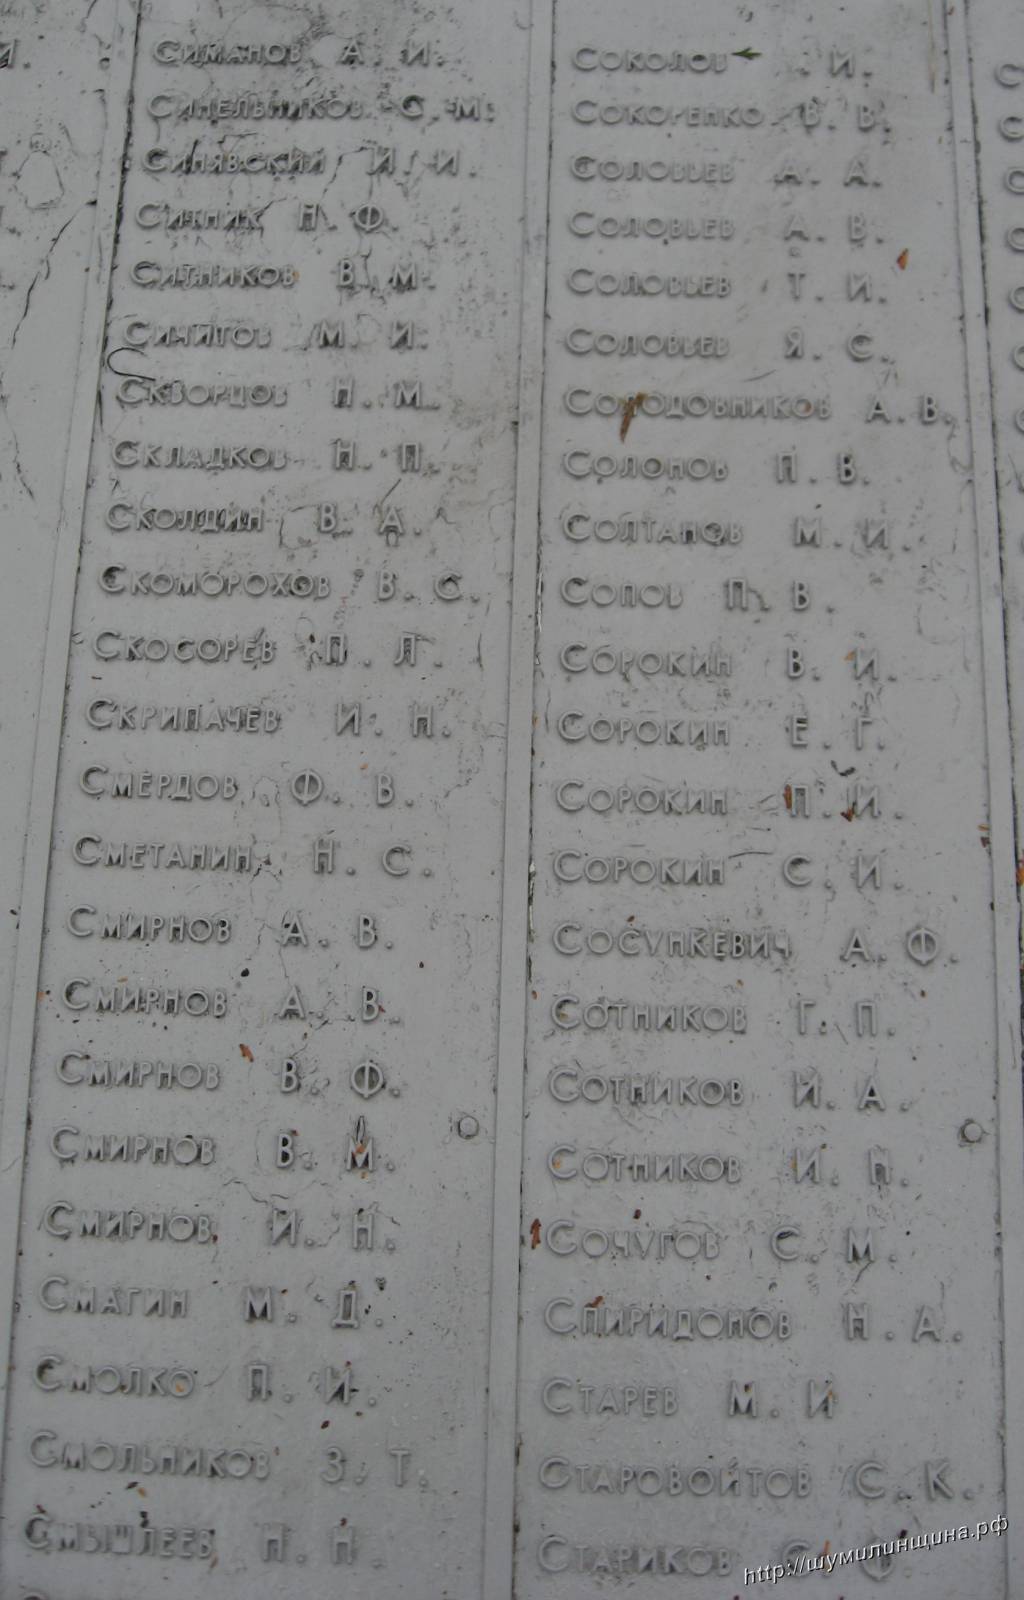 Симанов А. И.
Синельников С. М.
Синявский И. И.
Ситник Н. Ф.
Ситников В. М.
Сичитов М. И.
Скворцов Н. М.
Складков Н. П.
Сколдин В. А.
Скоморохов В. С.
Скосорев П. Л.
Скрипачев И. Н.
Смердов Ф. В.
Сметанин Н. С.
Смирнов А. В.
Смирнов А. В.
Смирнов В. Ф.
Смирнов В. М.
Смирнов И. Н.
Смагин М. Д.
Смолко П. И.
Смольников З. Т.
Смышлеев Н. Н.
Соколов . И.
Сокоренко В. В.
Соловьев А. А.
Соловьев А. В.
Соловьев Т. И.
Соловьев Я. С.
Солодовников А. В.
Солонов П. В.
Солтанов М. И.
Сопов П. В.
Сорокин В. И.
Сорокин Е. Г.
Сорокин П. И.
Сорокин С. И.
Сосункевич А. Ф.
Сотников Г. П.
Сотников И. А.
Сотников И. Н.
Сочугов С. М.
Спиридонов Н. А.
Старев М. И
Старовойтов С. К.
Стариков С. Ф
http://шумилинщина.рф